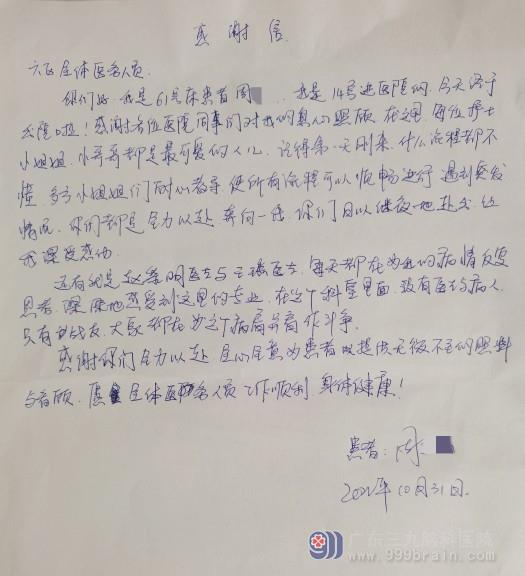 感谢信
六区全体医务人员
你们好,我是61号床患者周 我是14号进医院的,今天终于
出院啦!感谢各位医院同事们对我的悉心照顾,在这里,每位护士
小姐姐,小哥哥都是最可爱的人儿,记得第一天刚来,什么流程都不
懂,多亏小姐姐们耐心教导,使所有流程可以顺畅进行,遇到突发
情况,你们都是全力以赴,奔向一线,你们日以继夜地付出
我深受感动
还有就是赵 明医生与王 医生,每天都在为我的病情反复
思考,深深地感受到这里的专业,在这个科室里面,没有医与病人,
只有战友,大家都在为这个病局 作斗争.
感谢你们全力以赴,全心全意为患者 提供无微不至的照料
与看顾,愿全体医务人员工作顺利,身体健康!
患者:周
2021年10月31日.
广东三九脑科医院
www.999brain.com